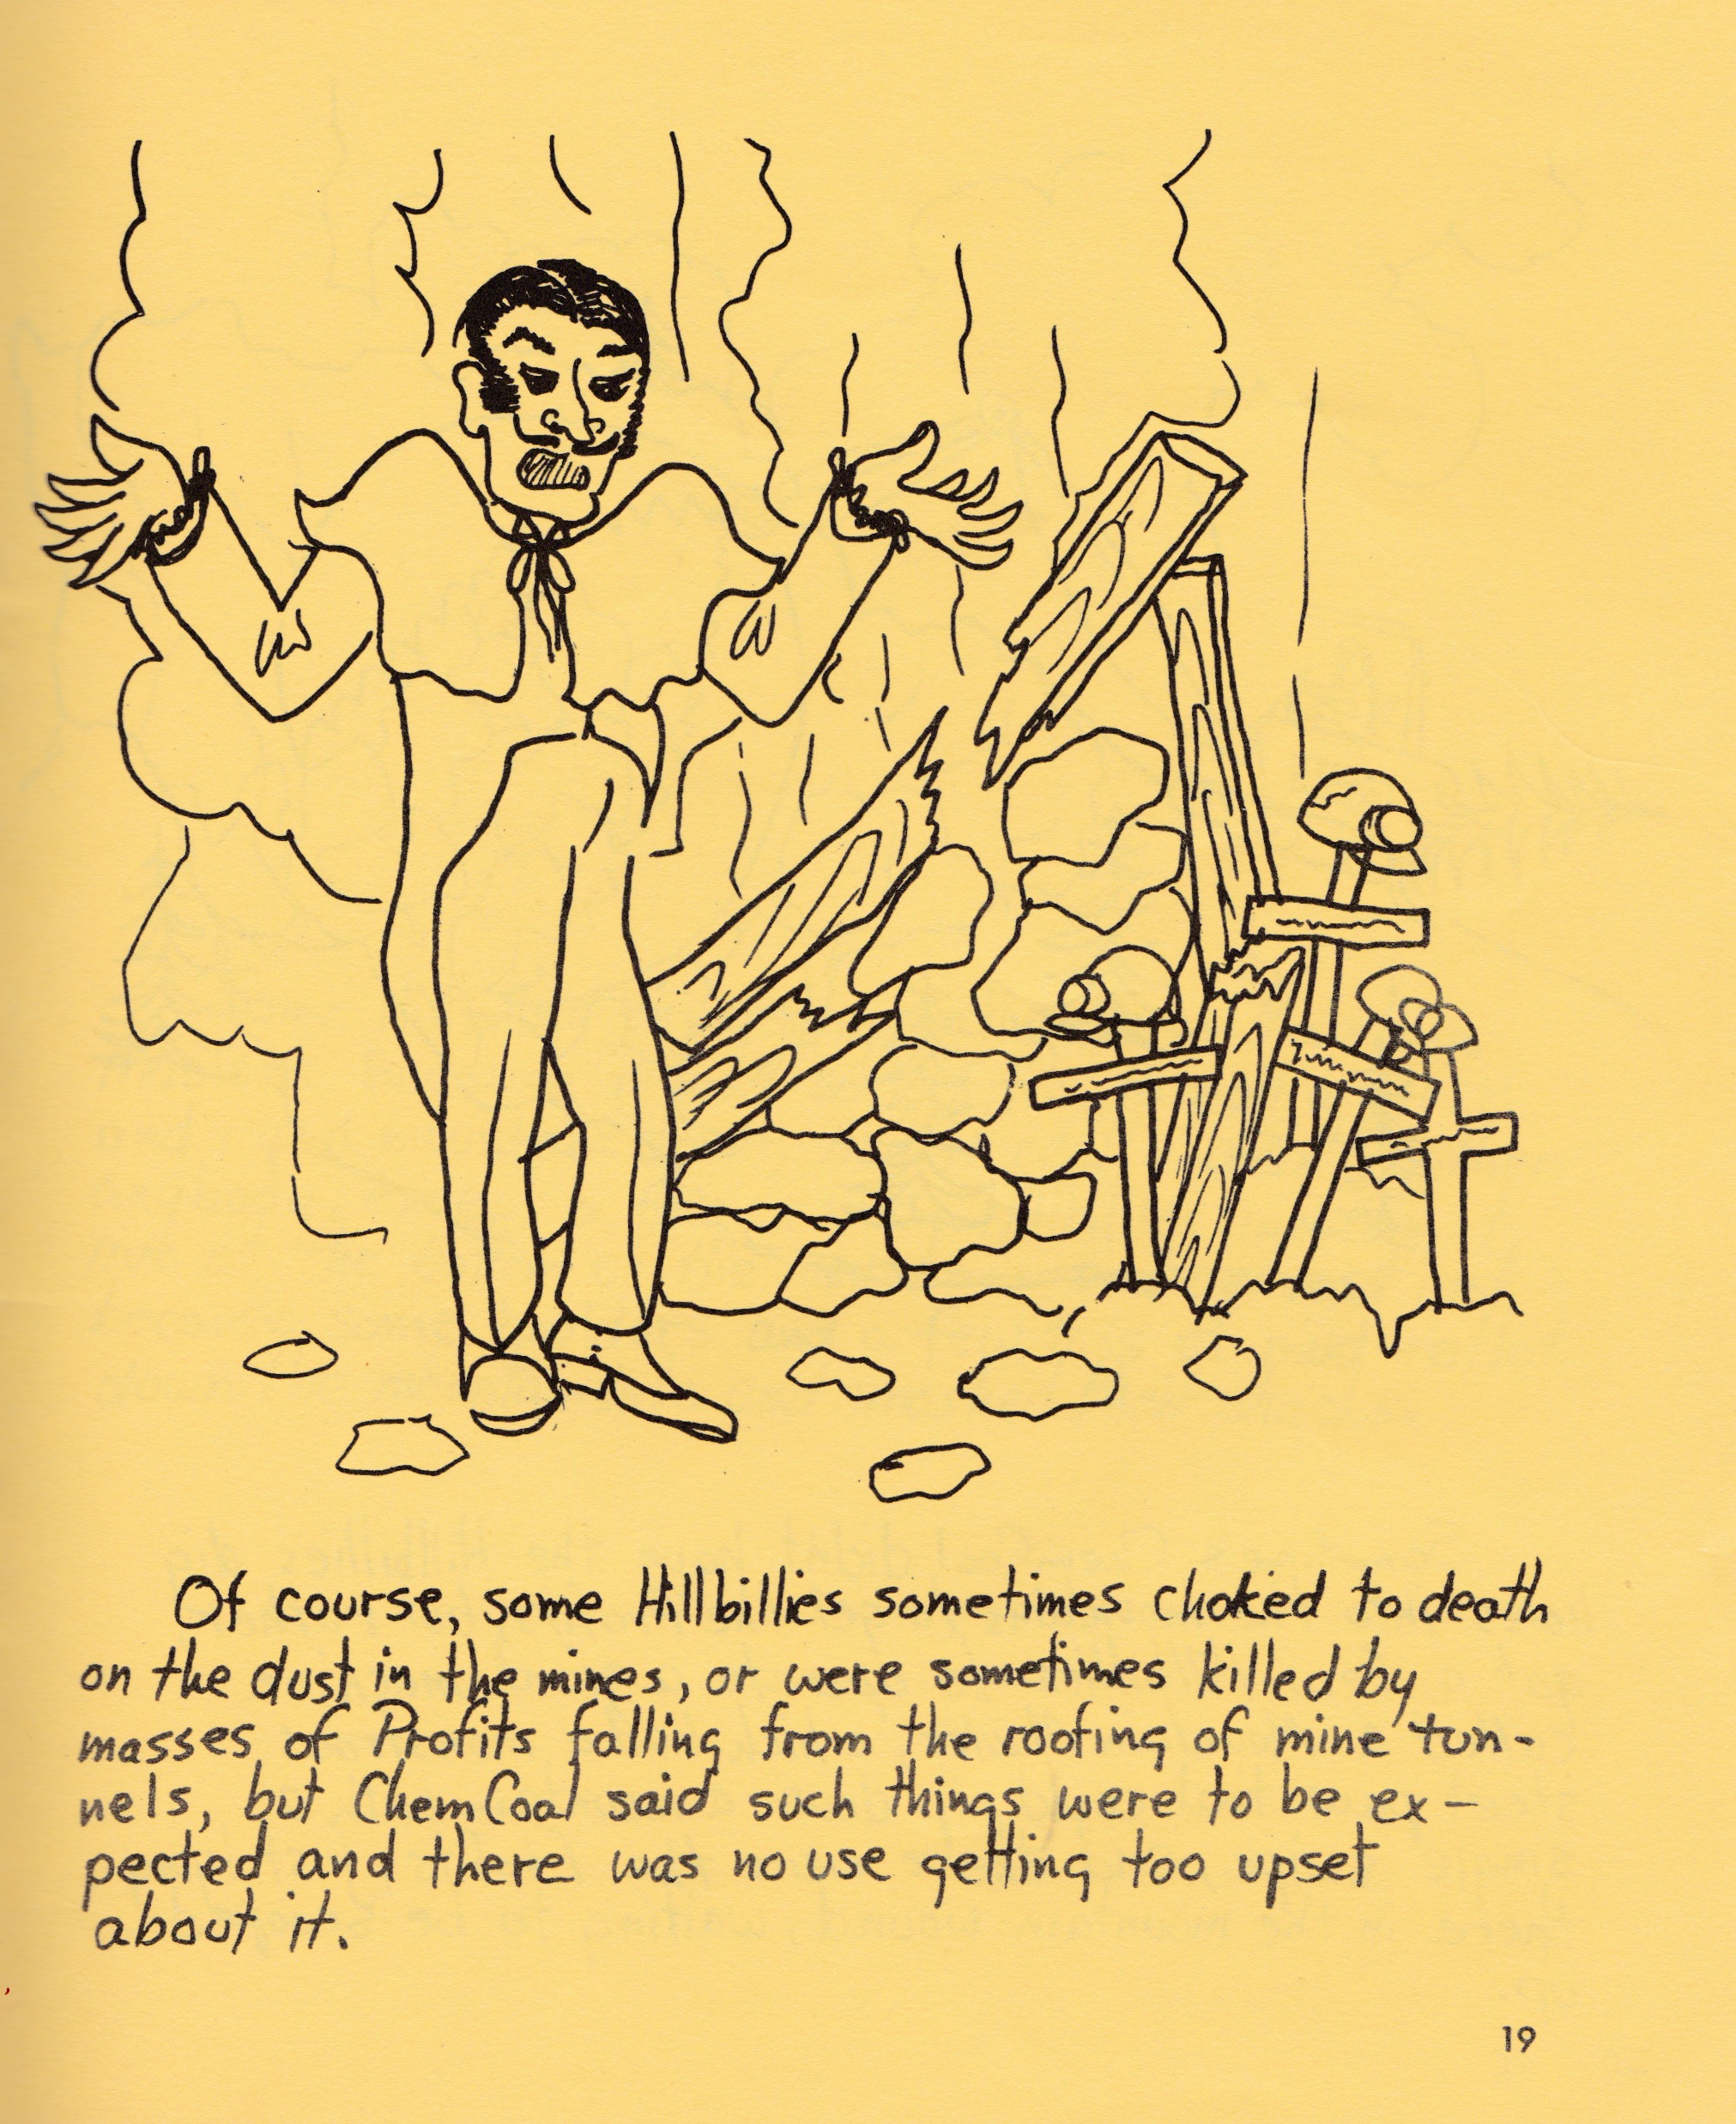 Of course, some Hillbillies sometimes choked to death
on the dust in the mines, or were sometimes killed by
masses of Profits falling from the roofing of mine tun-
nels, but ChemCoal said such things were to be ex-
pected and there was no use getting too upset
about it.
19